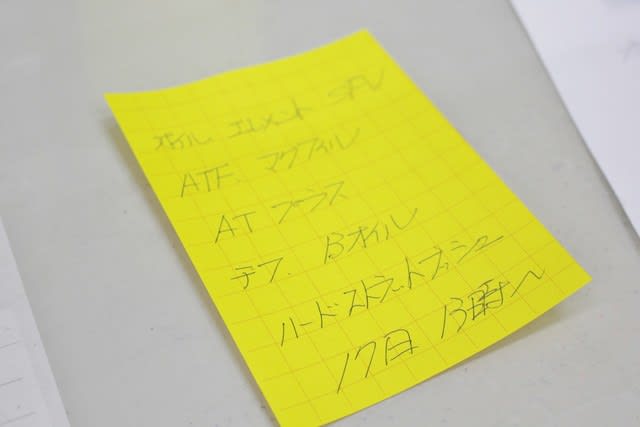 オイル エレメント SFV
ATF. マグフィル
AT プラス
デフ. Bオイル
ハードストラットブッシュ
17日 13時〜